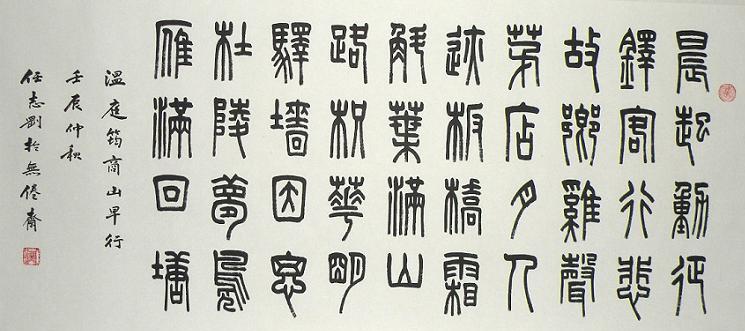 晨起動征
鐸客行悲
故鄉雞聲
茅店月人
迹板橋霜
解葉滿山
路枳華明
驛墻因思
杜陵夢鳧
雁滿回塘
溫庭筠商山早行
壬辰仲秋
任志劉於無倦齋